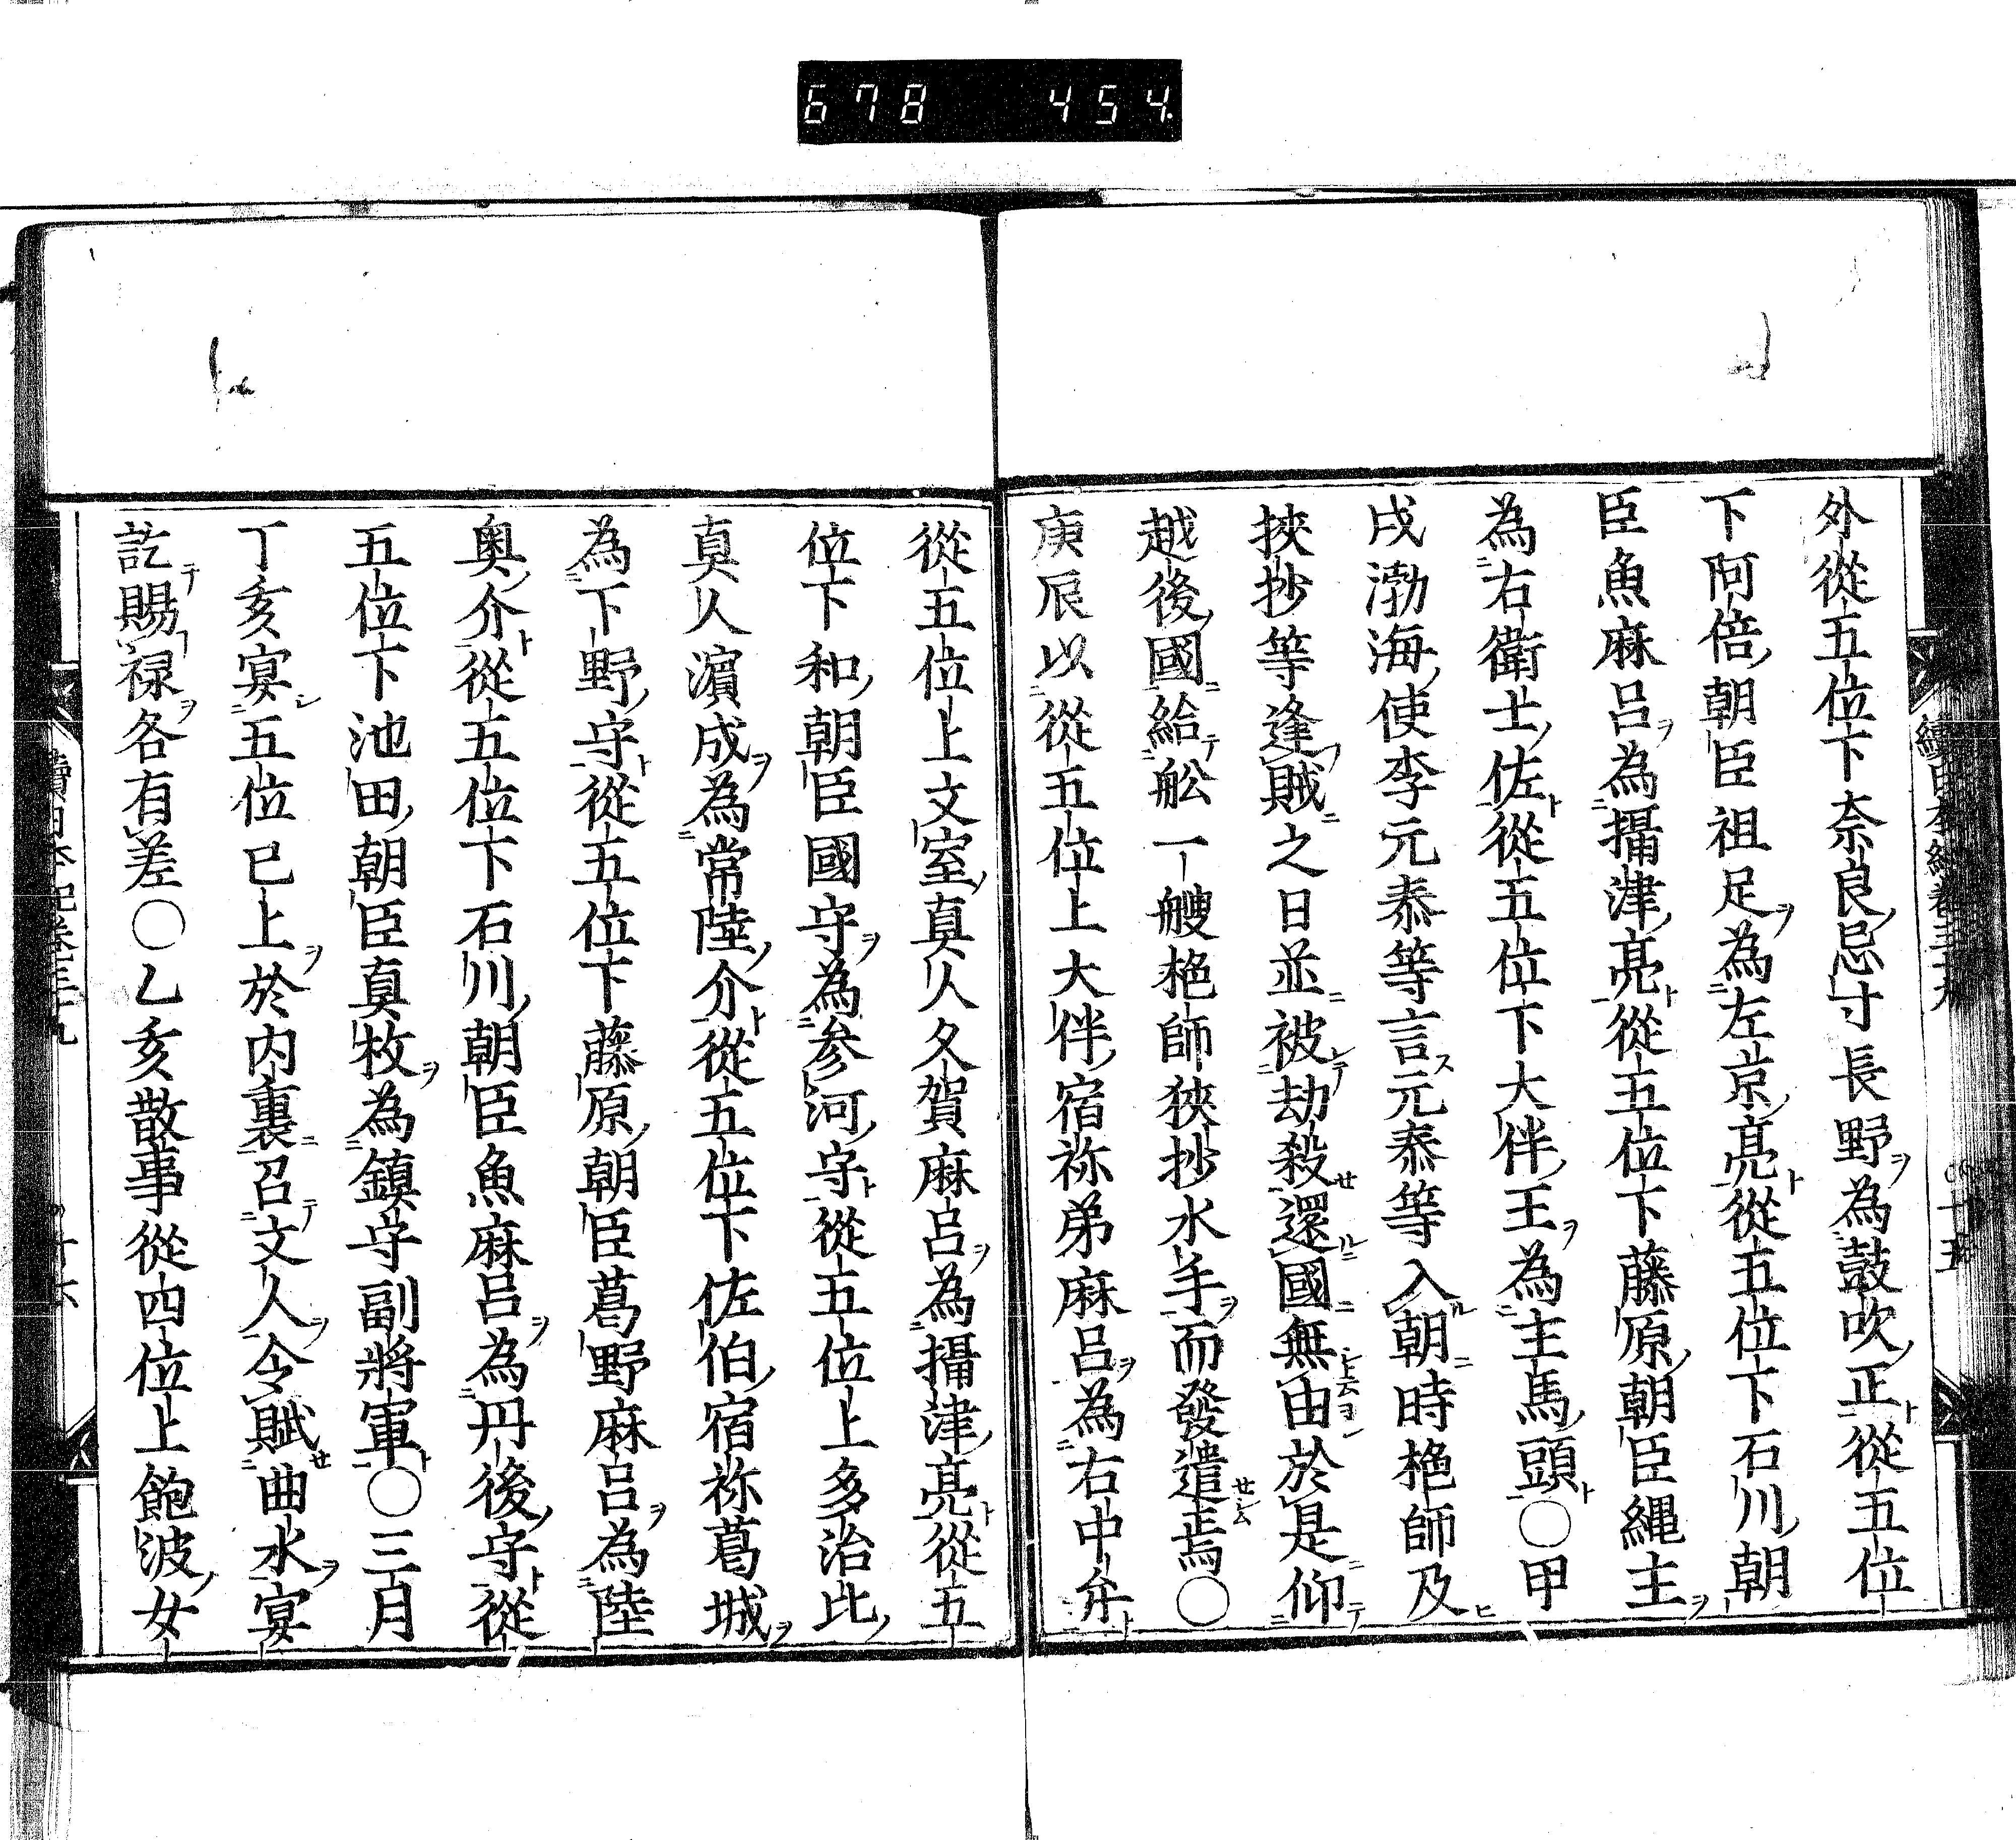 678 454.
外從五位下奈良忌寸長野為鼓吹正從五位
下阿倍朝臣祖足為左京亮從五位下石川朝
臣魚麻呂為攝津亮從五位下藤原朝臣縄主
為右衛士佐從五位下大伴王為主馬頭○甲
戌渤海使李元泰等言元泰等入朝時柂師及
挾抄等逢賊之日並被劫殺還國無由於是仰
越後國給舩一艘柂師狹抄水手而發遣焉○
庚辰以從五位上大伴宿祢弟麻呂為右中弁
從五位上文室真人久賀麻呂為攝津亮從五
位下和朝臣國守為参河守從五位上多治比
真人濵成為常陸介從五位下佐伯宿祢葛城
為下野守從五位下藤原朝臣葛野麻呂為陸
奥介從五位下石川朝臣魚麻呂為丹後守從
五位下池田朝臣真牧為鎮守副將軍○三月
丁亥宴五位已上於内裏召文人令賦曲水宴
訖賜禄各有差○乙亥散事從四位上飽波女
續日本紀卷三十九